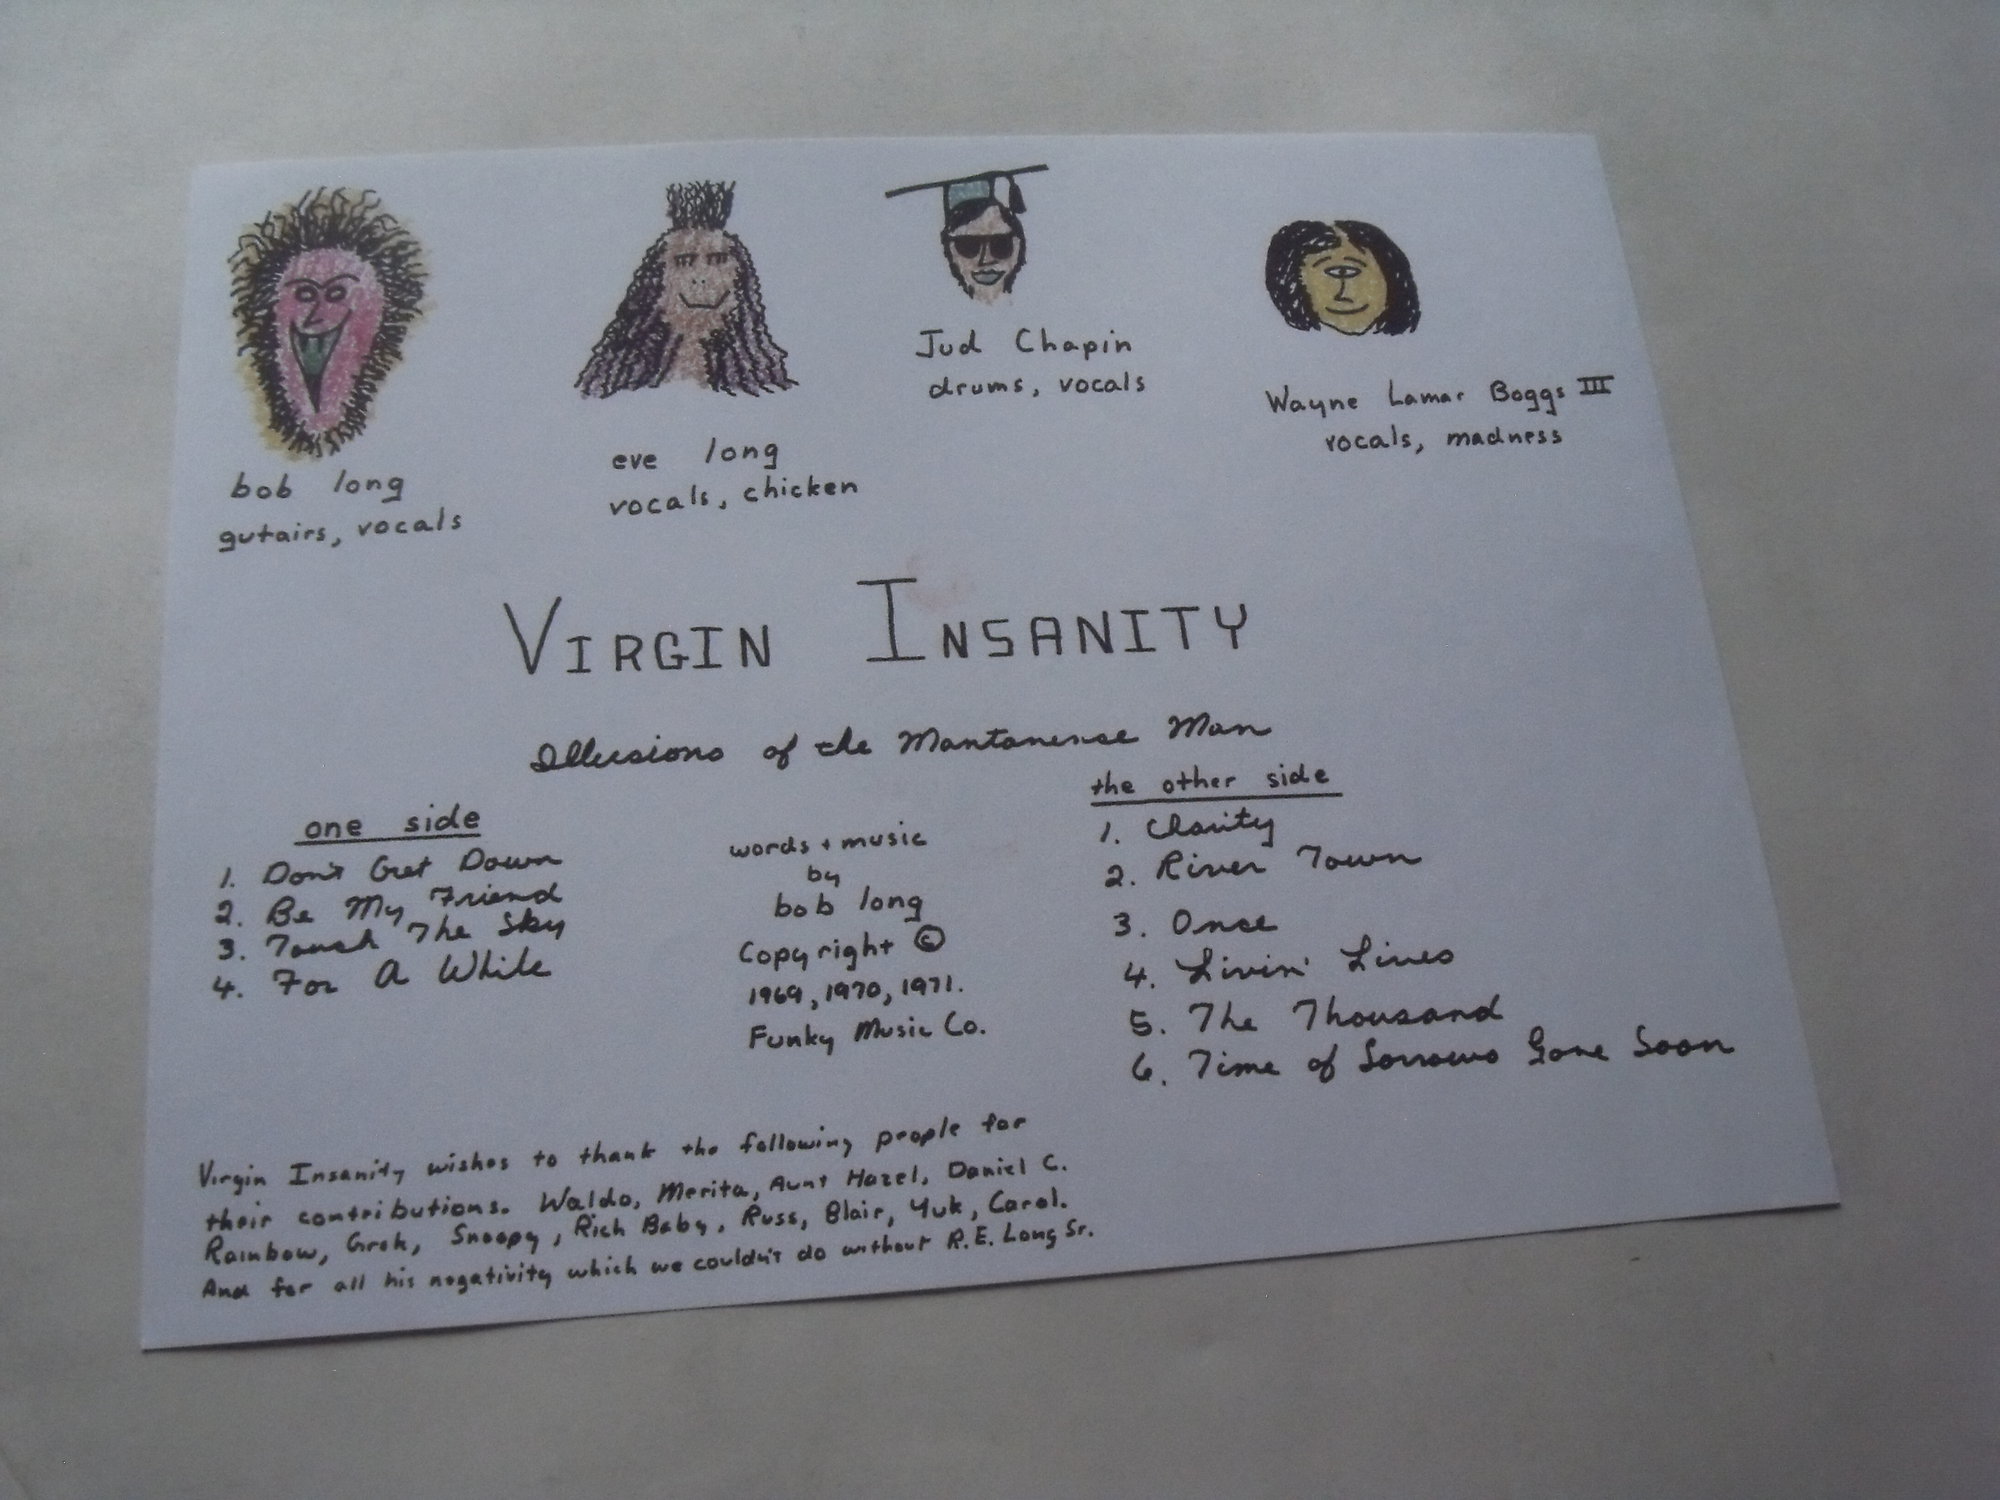 bob long
gutairs, vocals
eve long
vocals, chicken
Jud Chapin
drums, vocals
Wayne Lamar Boggs III
vocals, madness
VIRGIN INSANITY
Illusions of the Mantanense Man
one side
1. Don't Get Down
2. Be My Friend
3. Touch The Sky
4. For A While
words + music
by
bob long
Copyright ©
1969, 1970, 1971.
Funky Music Co.
the other side
1. Clarity
2. River Town
3. Once
4. Livin' Lives
5. The Thousand
6. Time of Sorrows Gone Soon
Virgin Insanity wishes to thank the following people for
their contributions. Waldo, Merita, Aunt Hazel, Daniel C.
Rainbow, Grok, Snoopy, Rich Baby, Russ, Blair, Yuk, Carol.
And for all his negativity which we couldn't do without R.E. Long Sr.